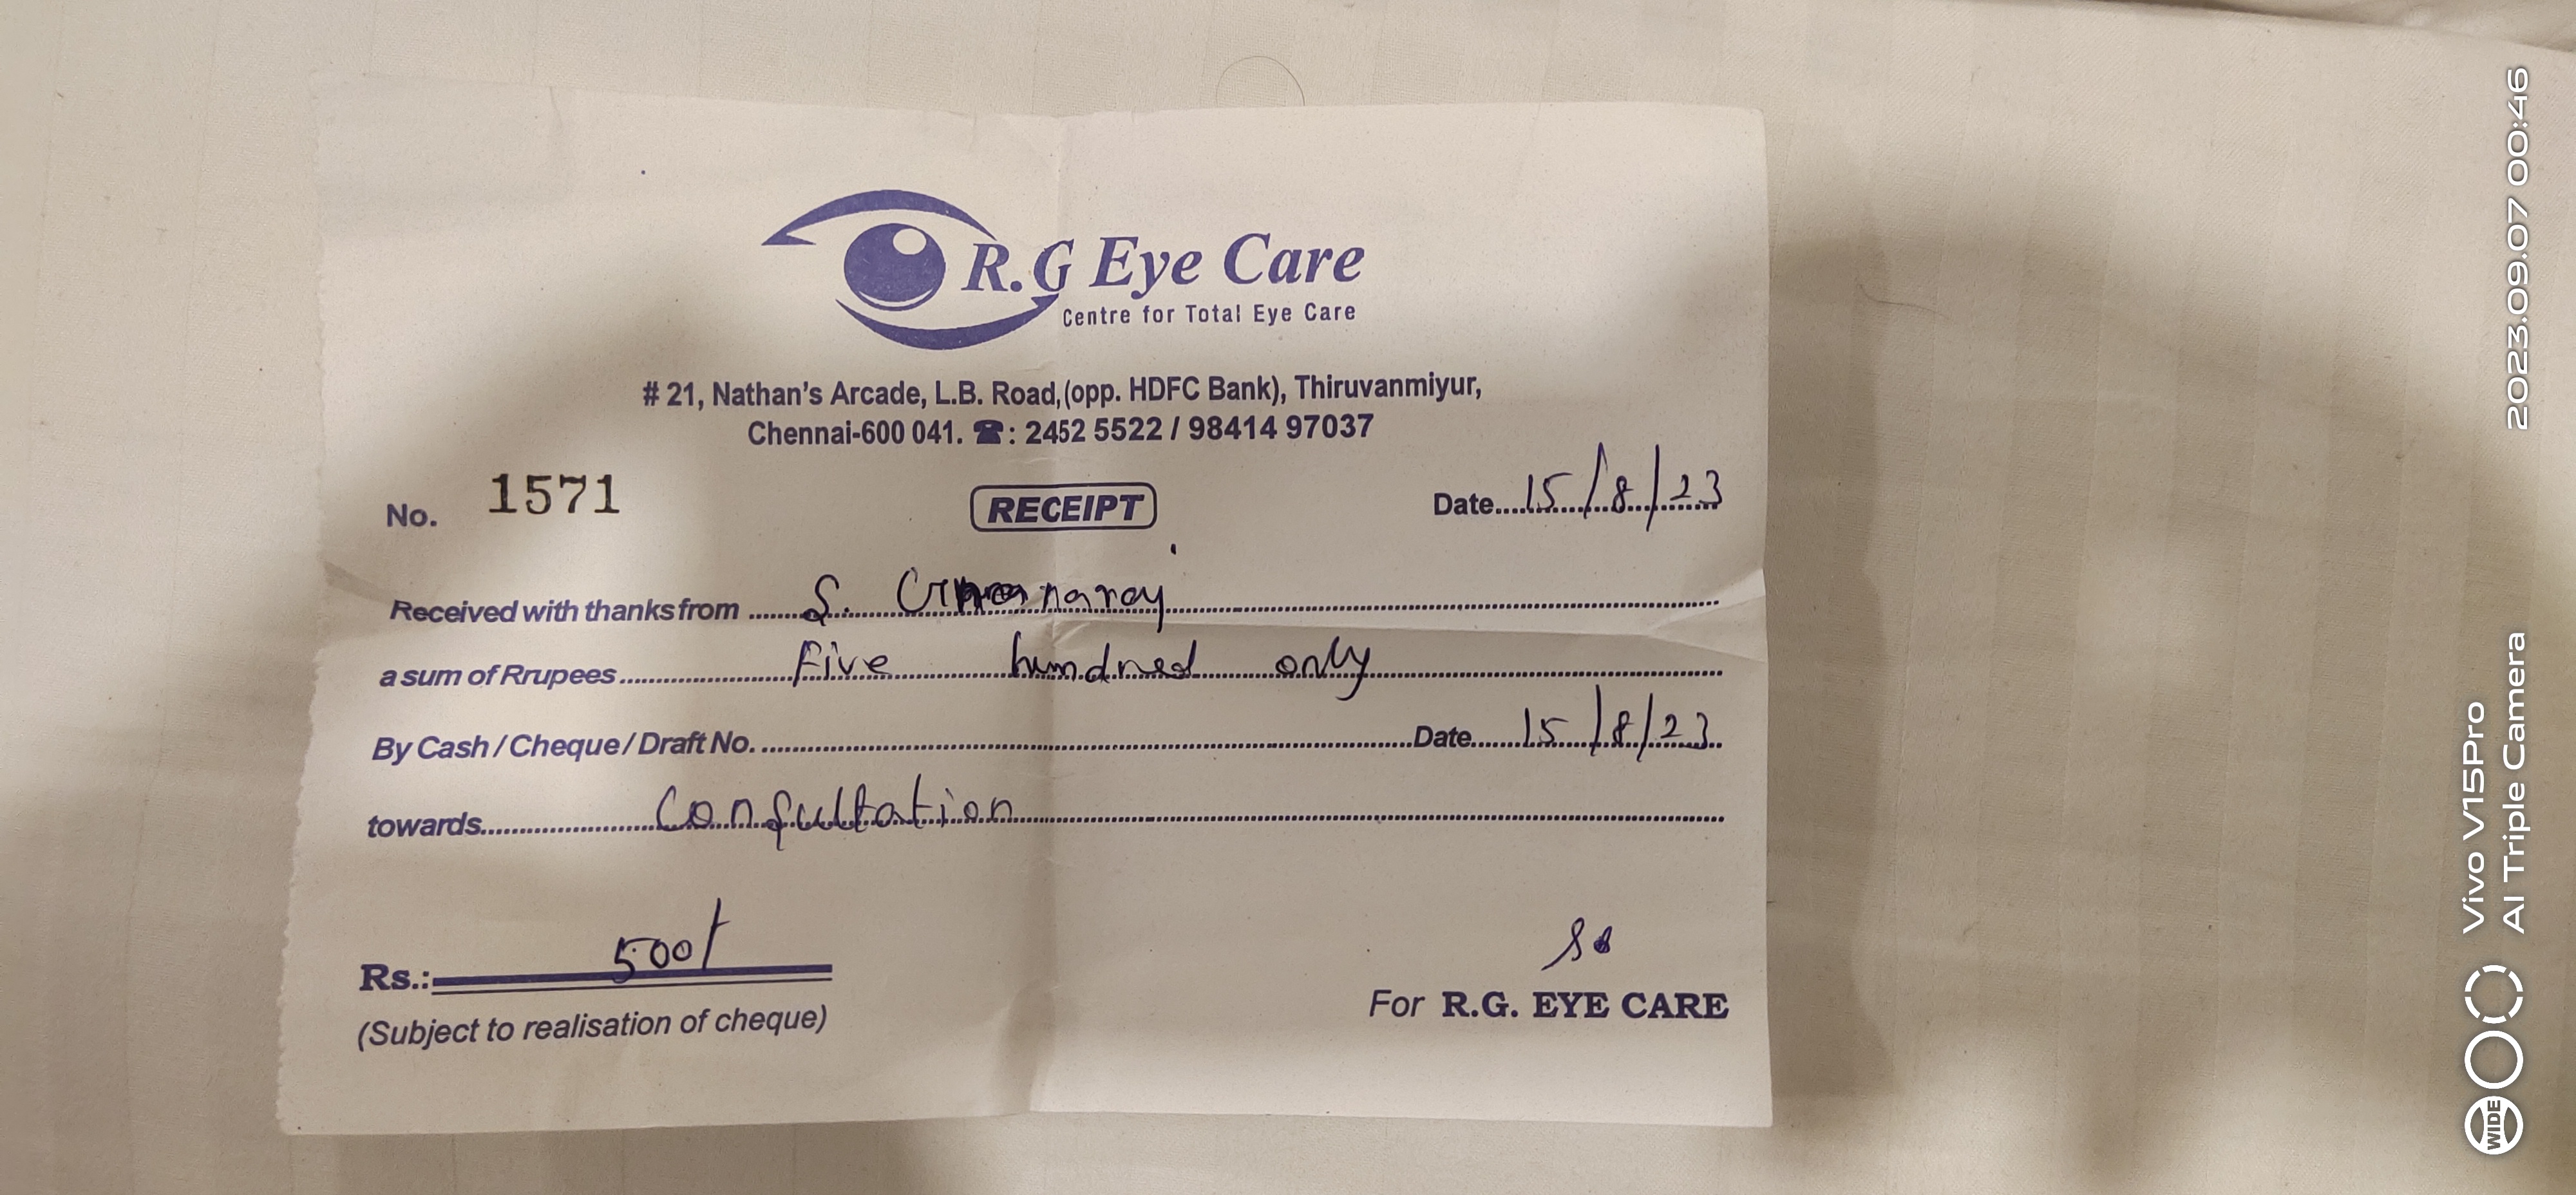 R.G Eye Care
Centre for Total Eye Care
# 21, Nathan's Arcade, L.B. Road,(opp. HDFC Bank), Thiruvanmiyur,
Chennai-600 041. ☎: 2452 5522 / 98414 97037
No. 1571 RECEIPT Date....15/8/23
Received with thanks from ....S.
a sum of Rrupees....Five hundred only
By Cash / Cheque / Draft No. ....Date....15/8/23
towards....Consultation
Rs.: 500/
(Subject to realisation of cheque)
For R.G. EYE CARE
WIDE
Vivo V15Pro
AI Triple Camera
2023.09.07 00:46